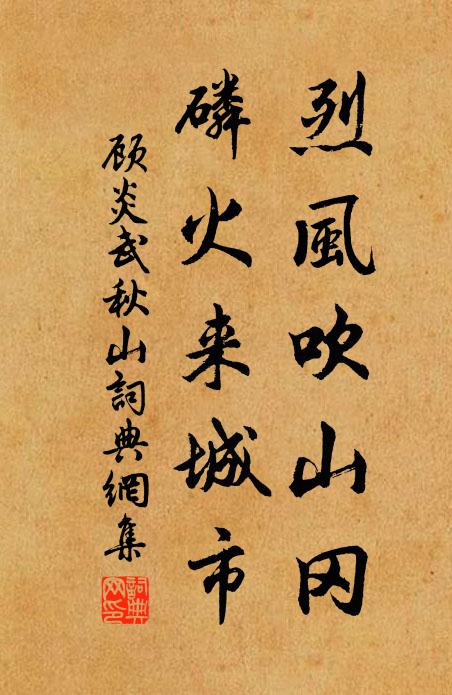 烈風吹山冈
磷火来城市
顾炎武秋山詞典網集
詞典网印